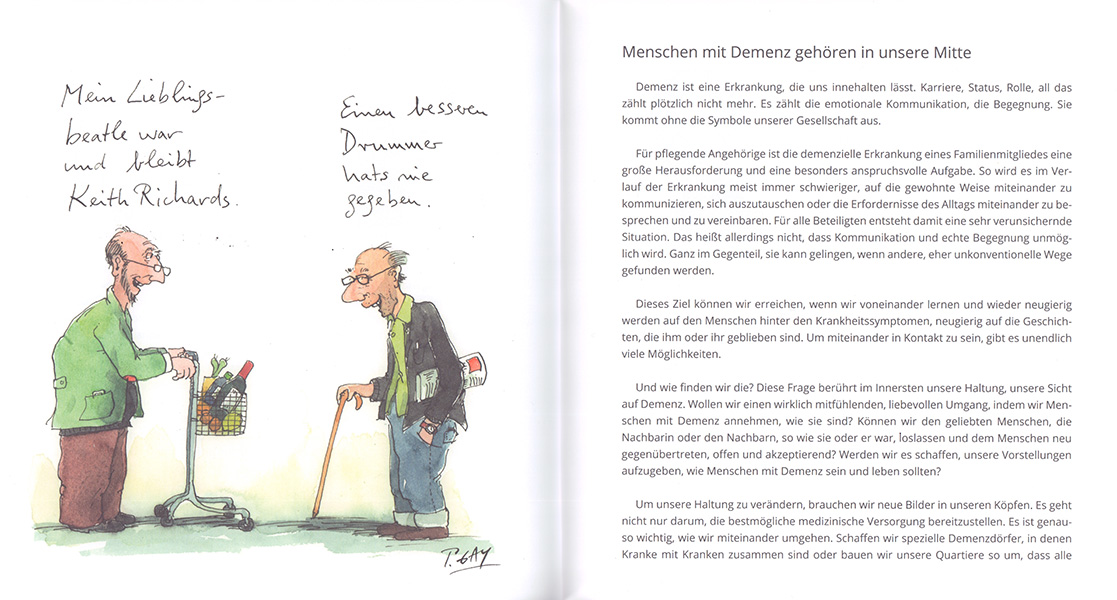 Mein Lieblings-
beatle war
und bleibt
Keith Richards.
Einen besseren
Drummer
hats nie
gegeben.
P. GAY
Menschen mit Demenz gehören in unsere Mitte
Demenz ist eine Erkrankung, die uns innehalten lässt. Karriere, Status, Rolle, all das
zählt plötzlich nicht mehr. Es zählt die emotionale Kommunikation, die Begegnung. Sie
kommt ohne die Symbole unserer Gesellschaft aus.
Für pflegende Angehörige ist die demenzielle Erkrankung eines Familienmitgliedes eine
große Herausforderung und eine besonders anspruchsvolle Aufgabe. So wird es im Ver-
lauf der Erkrankung meist immer schwieriger, auf die gewohnte Weise miteinander zu
kommunizieren, sich auszutauschen oder die Erfordernisse des Alltags miteinander zu be-
sprechen und zu vereinbaren. Für alle Beteiligten entsteht damit eine sehr verunsichernde
Situation. Das heißt allerdings nicht, dass Kommunikation und echte Begegnung unmög-
lich wird. Ganz im Gegenteil, sie kann gelingen, wenn andere, eher unkonventionelle Wege
gefunden werden.
Dieses Ziel können wir erreichen, wenn wir voneinander lernen und wieder neugierig
werden auf den Menschen hinter den Krankheitssymptomen, neugierig auf die Geschich-
ten, die ihm oder ihr geblieben sind. Um miteinander in Kontakt zu sein, gibt es unendlich
viele Möglichkeiten.
Und wie finden wir die? Diese Frage berührt im Innersten unsere Haltung, unsere Sicht
auf Demenz. Wollen wir einen wirklich mitfühlenden, liebevollen Umgang, indem wir Men-
schen mit Demenz annehmen, wie sie sind? Können wir den geliebten Menschen, die
Nachbarin oder den Nachbarn, so wie sie oder er war, loslassen und dem Menschen neu
gegenübertreten, offen und akzeptierend? Werden wir es schaffen, unsere Vorstellungen
aufzugeben, wie Menschen mit Demenz sein und leben sollten?
Um unsere Haltung zu verändern, brauchen wir neue Bilder in unseren Köpfen. Es geht
nicht nur darum, die bestmögliche medizinische Versorgung bereitzustellen. Es ist genau-
so wichtig, wie wir miteinander umgehen. Schaffen wir spezielle Demenzdörfer, in denen
Kranke mit Kranken zusammen sind oder bauen wir unsere Quartiere so um, dass alle